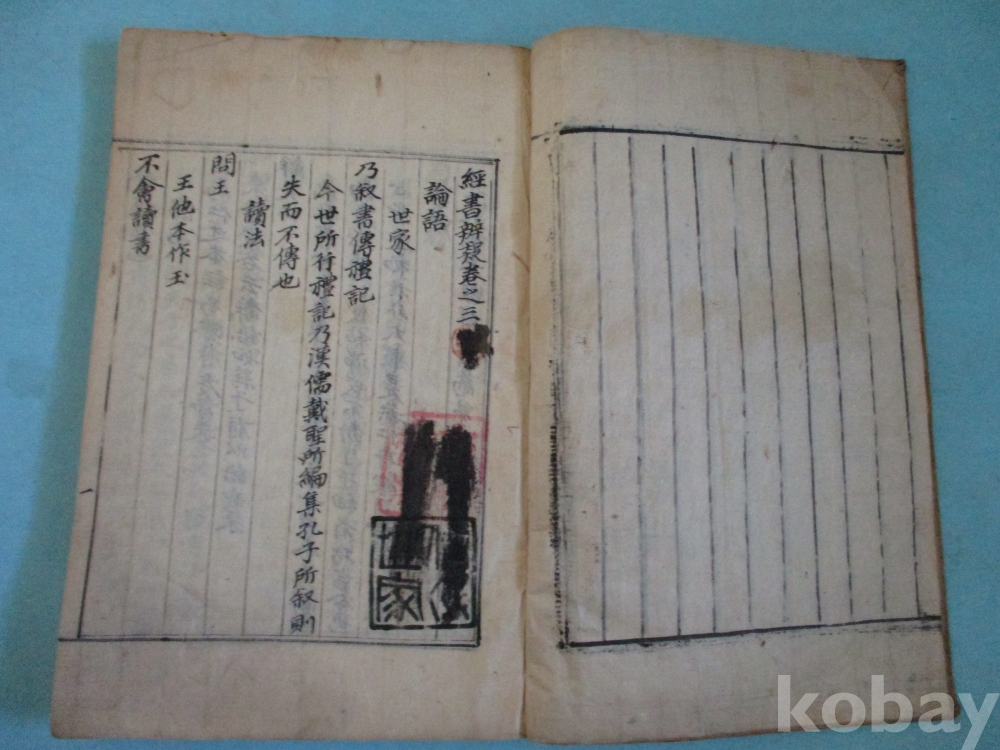 經書辨疑卷之三
論語
世家
乃叙書傳禮記
今世所行禮記乃漢儒戴聖所編集孔子所叙則
失而不傳也
讀法
問王
王他本作玉
不會讀書
一
世家
kobay